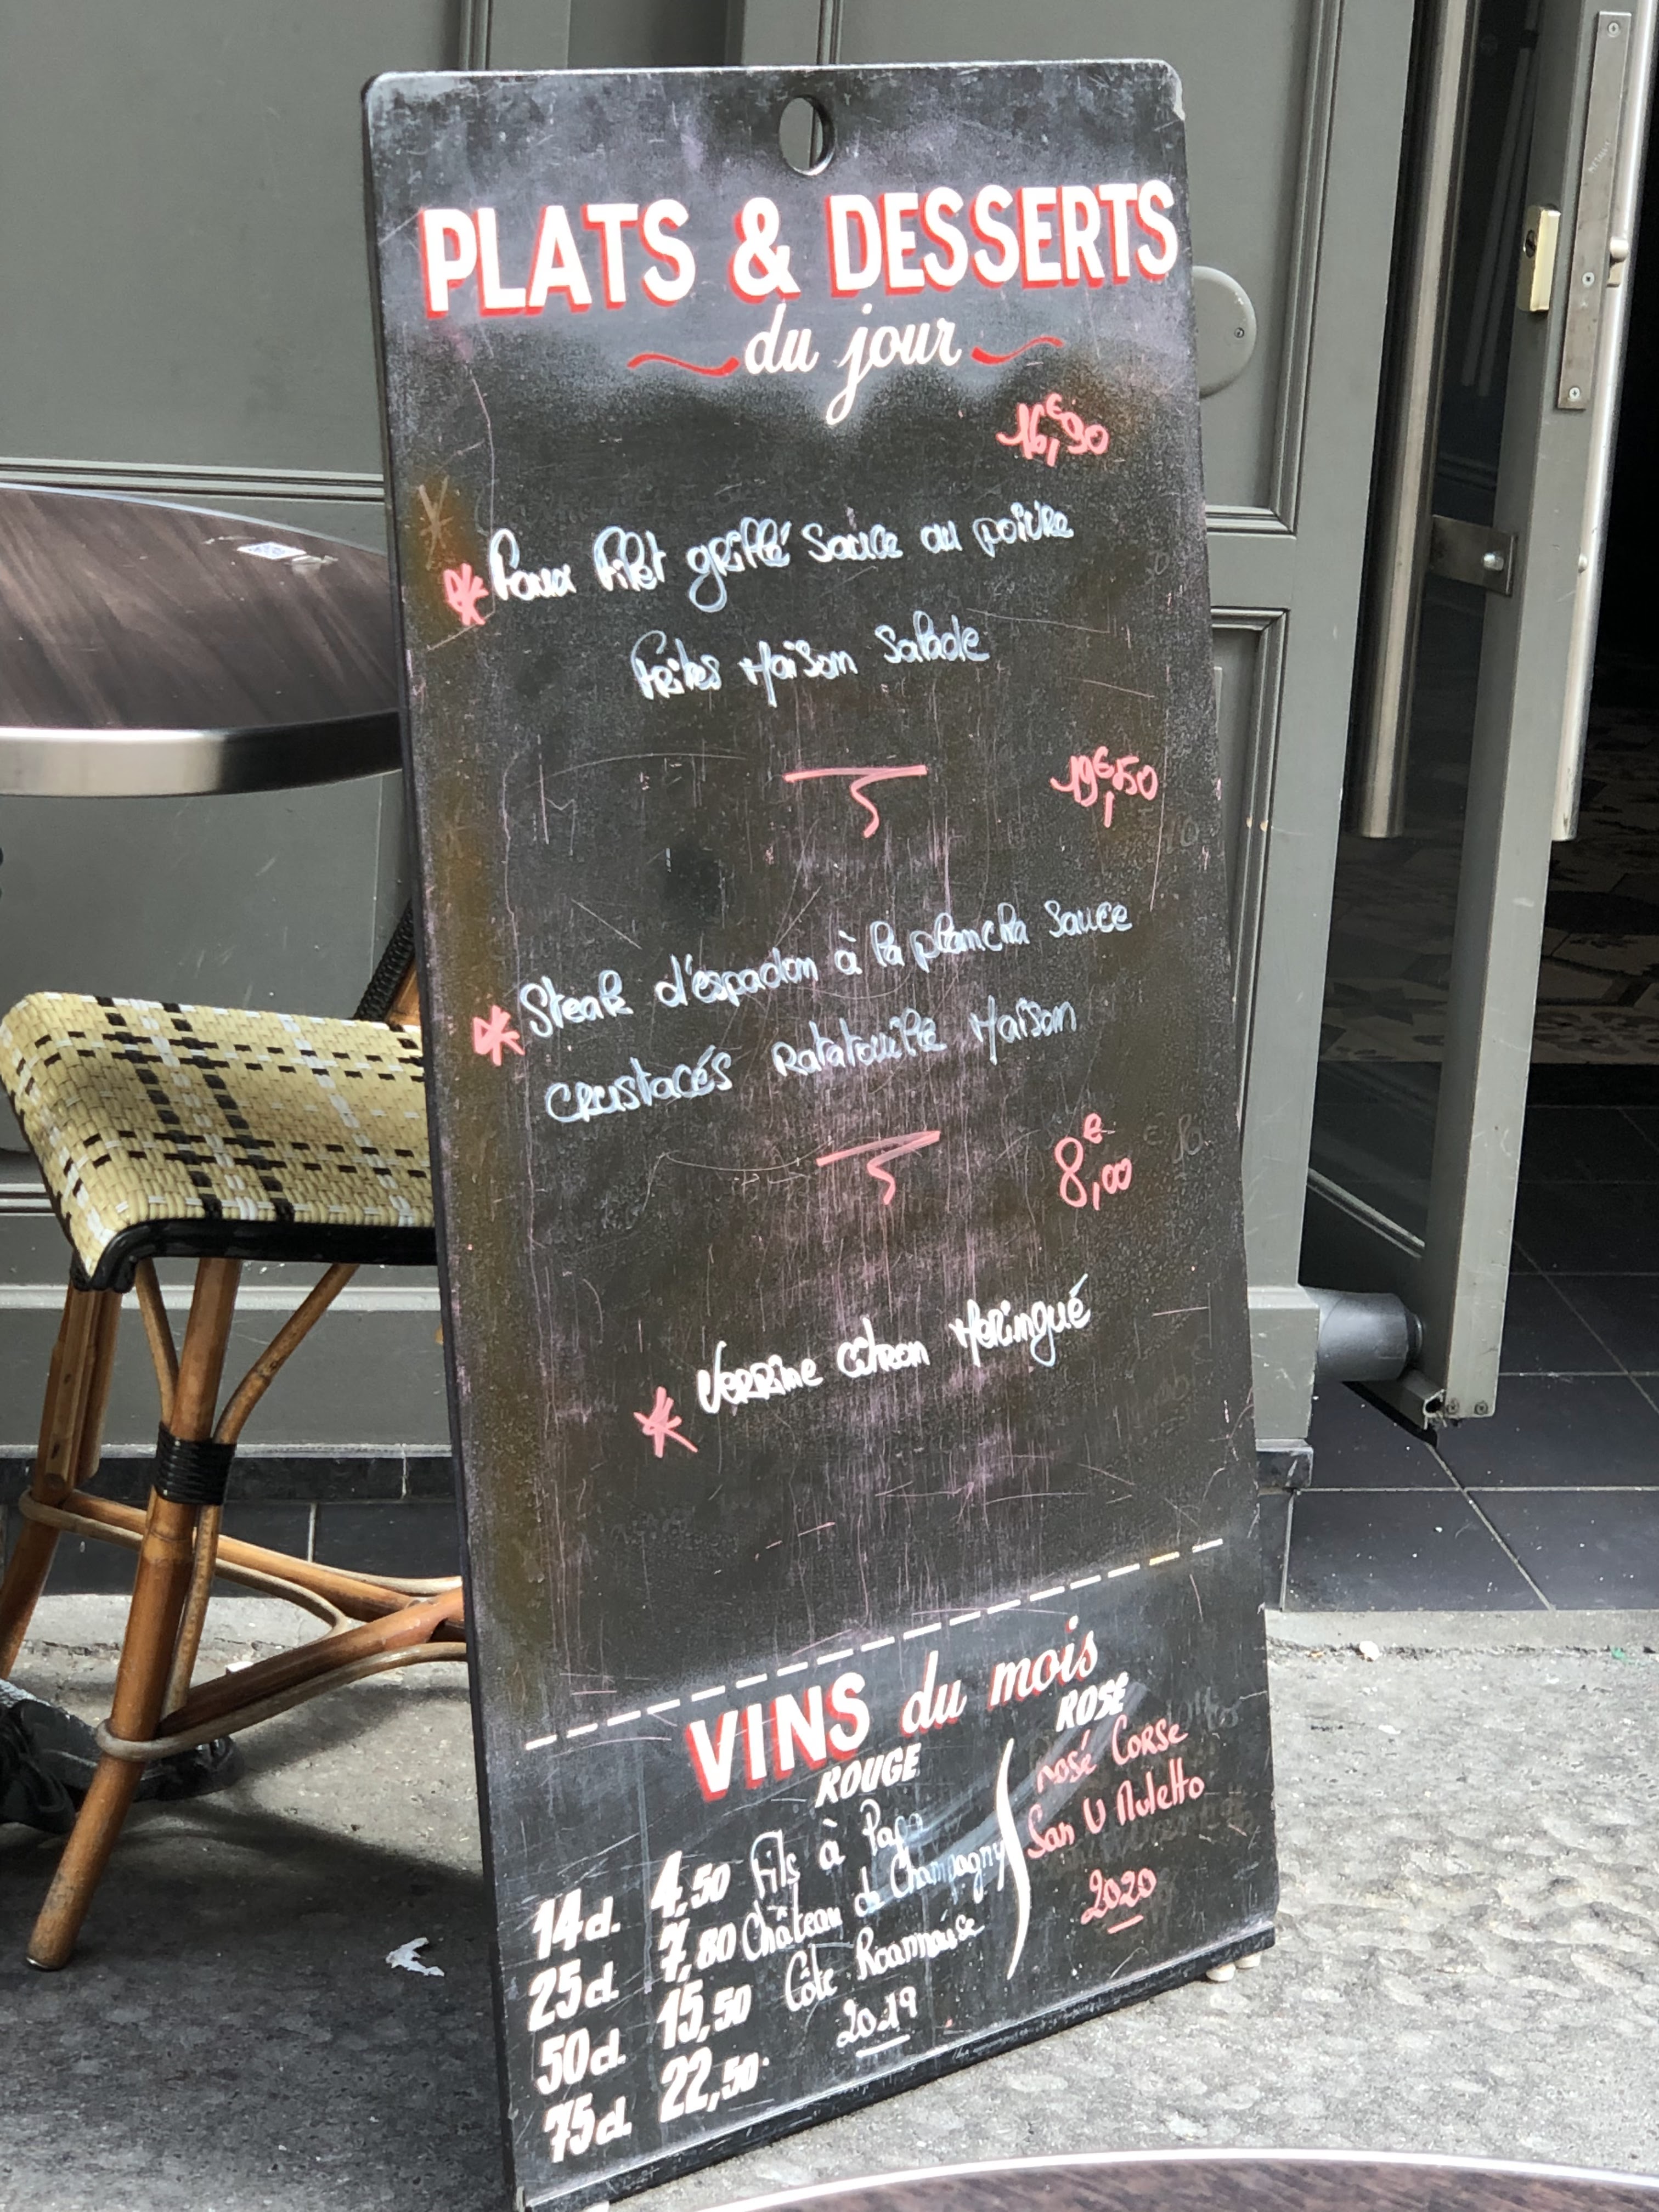 PLATS & DESSERTS
du jour
16,€90
Faux filet grillé sauce au poivre
Frites Maison Salade
19,€50
Steak d'espadon à la plancha sauce
crustacés Ratatouille Maison
8,€00
Verrine citron Meringué
VINS du mois
ROUGE
ROSE
14cl. 4,50
25cl. 7,80
50cl. 15,50
75cl. 22,50
Fils à Papa
Château de Champagny
Côte Roannaise
2019
rosé Corse
San
2020